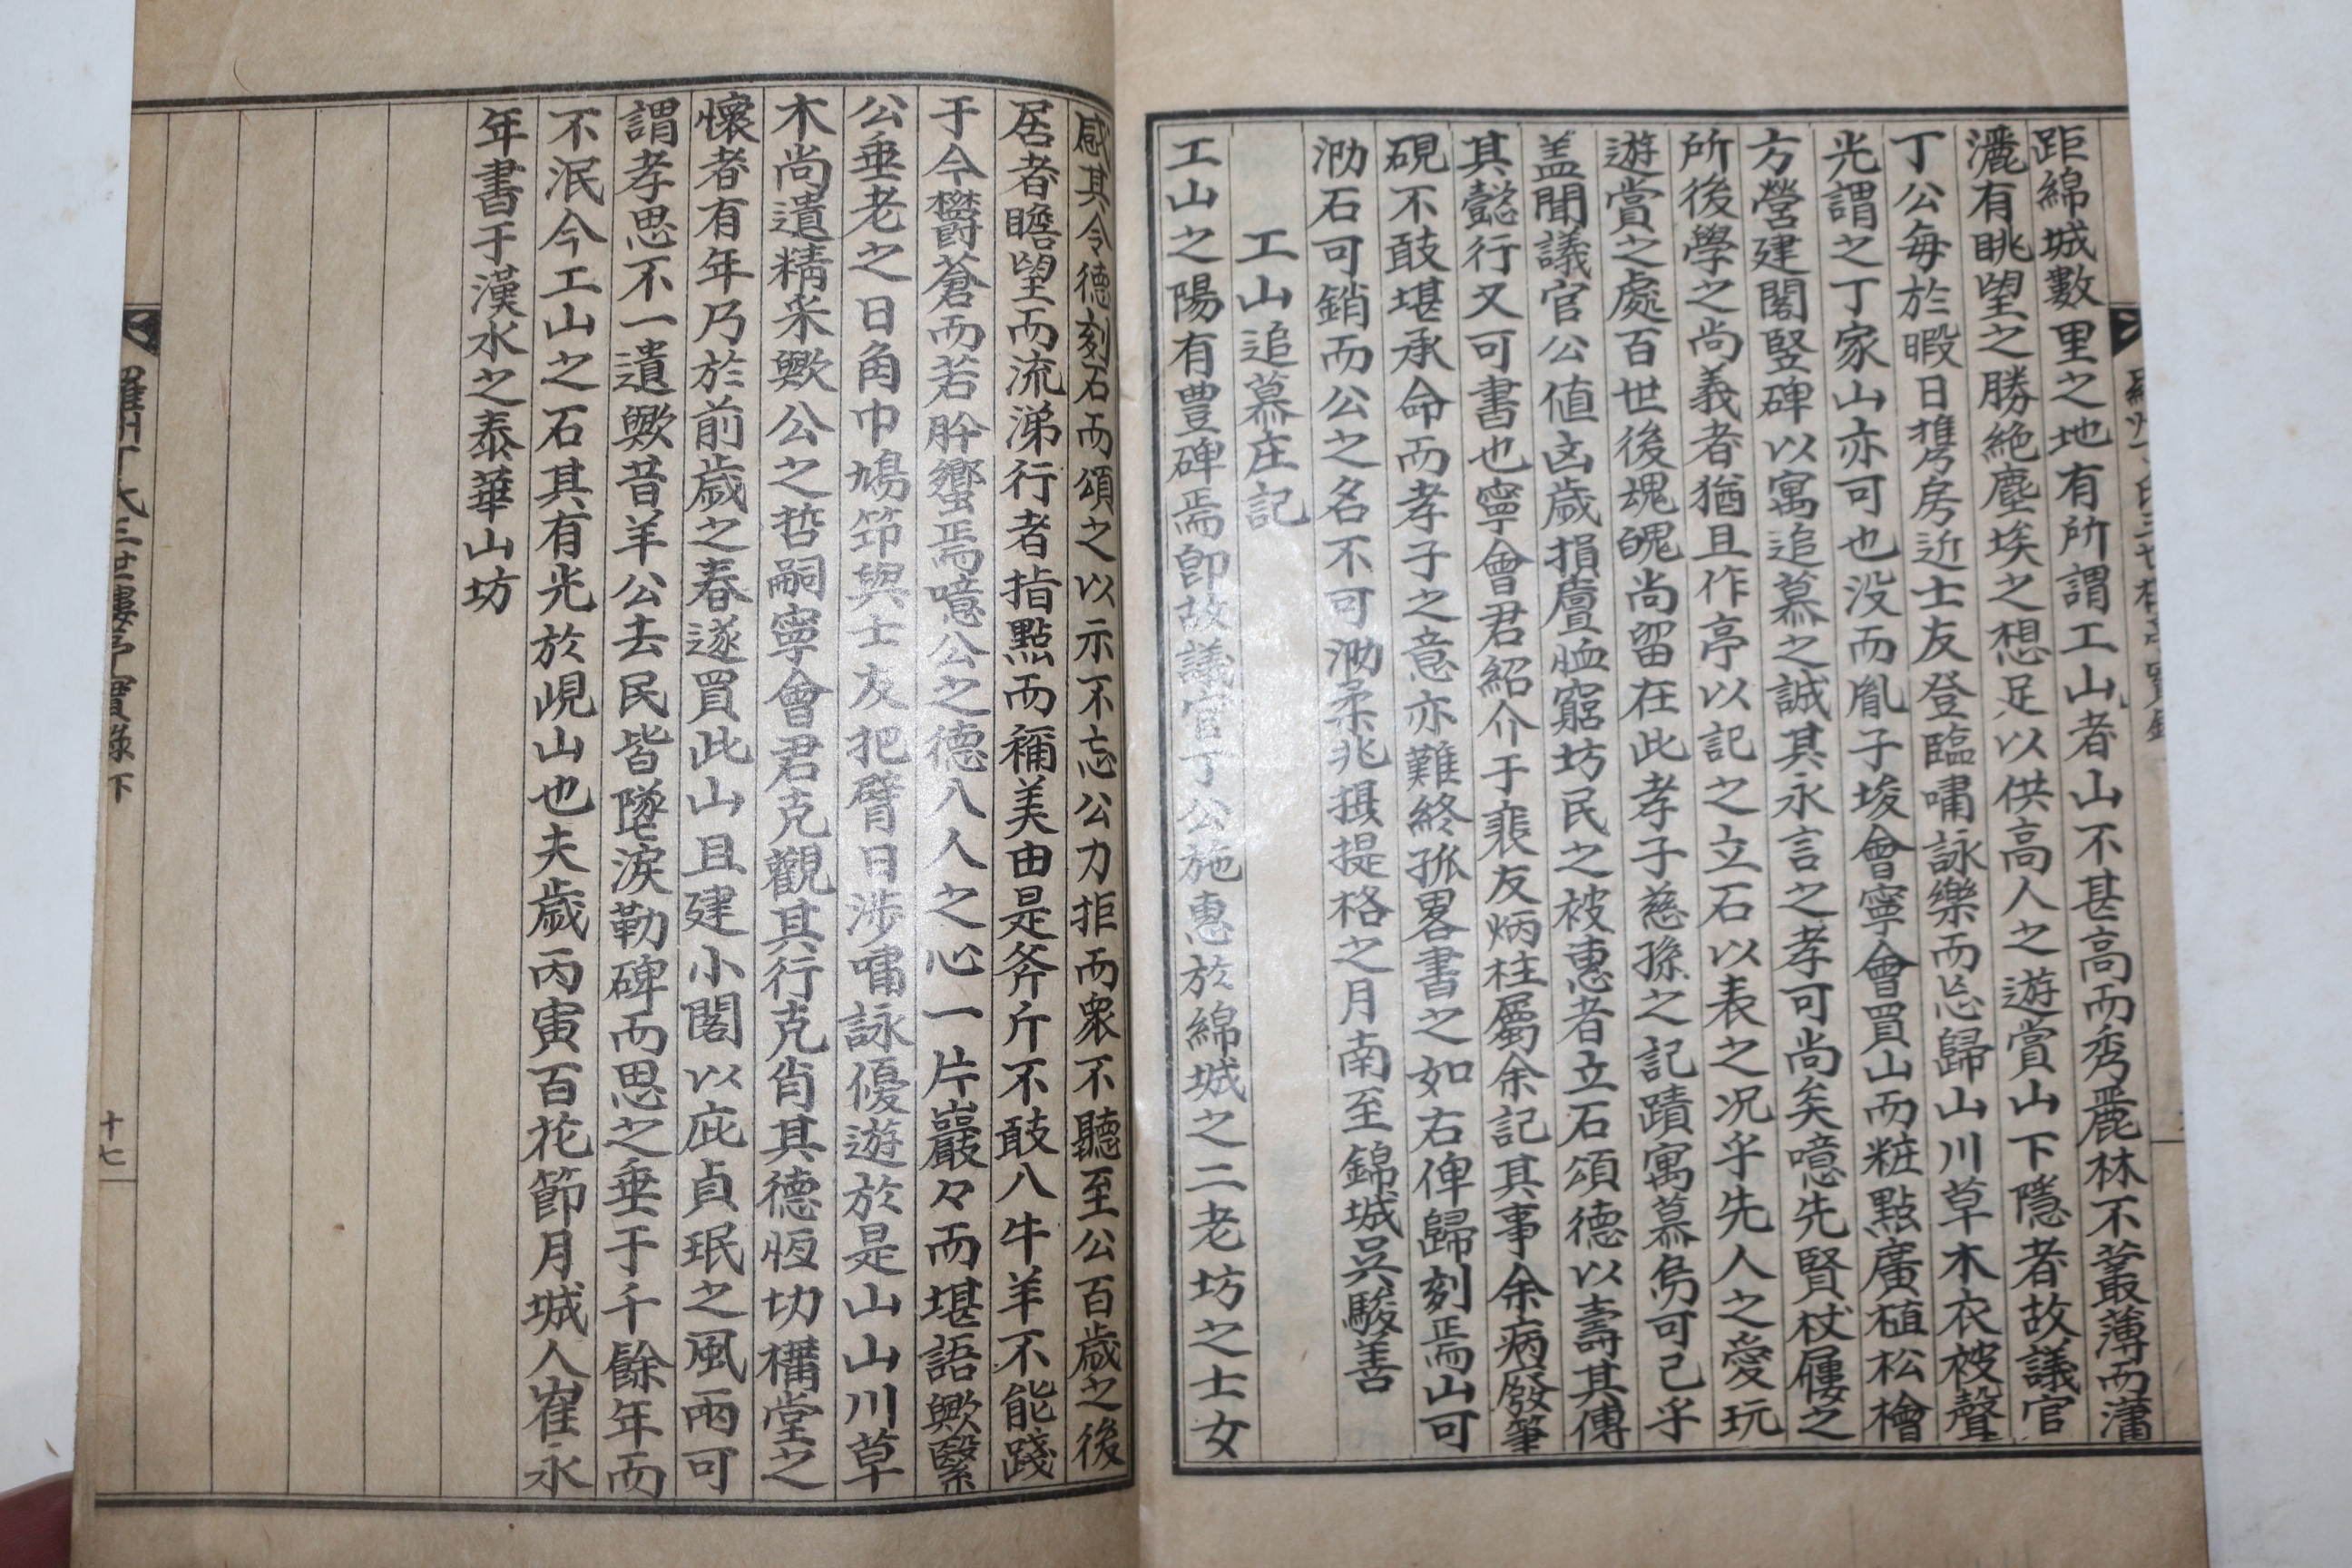 距綿城數里之地有所謂工山者山不甚高而秀麗林不叢薄而瀟
灑有眺望之勝絶塵埃之想足以供高人之遊賞山下隱者故議官
丁公每於暇日携房近士友登臨嘯詠樂而忘歸山川草木衣被聲
光謂之丁家山亦可也没而胤子埈會寧會買山而粧點廣植松檜
方營建閣竪碑以寓追慕之誠其永言之孝可尚矣噫先賢杖屨之
所後學之尚義者猶且作亭以記之立石以表之况乎先人之愛玩
遊賞之處百世後魂魄尚留在此孝子慈孫之記蹟寓慕烏可已乎
盖聞議官公値凶歲損廩恤窮坊民之被惠者立石頌德以壽其傳
其懿行又可書也寧會君紹介于裴友炳柱屬余記其事余病廢筆
硯不敢堪承命而孝子之意亦難終孤畧書之如右俾歸刻焉山可
泐石可銷而公之名不可泐柔兆摄提格之月南至錦城吳駿善
工山追慕庄記
工山之陽有豊碑焉卽故議官丁公施惠於綿城之二老坊之士女
感其令德刻石而頌之以示不忘公力拒而衆不聽至公百歲之後
居者瞻望而流涕行者指點而稱美由是斧斤不敢八牛羊不能踐
于今欝蒼而若肸蠁焉噫公之德八人之心一片巖々而堪語歟繄
公垂老之日角巾鳩笻與士友把臂日涉嘯詠優遊於是山山川草
木尚遺精采歟公之哲嗣寧會君克觀其行克肖其德恆切構堂之
懷者有年乃於前歲之春遂買此山且建小閣以庇貞珉之風雨可
謂孝思不一遺歟昔羊公去民皆墜淚勒碑而思之垂于千餘年而
不泯今工山之石其有光於峴山也夫歲丙寅百花節月城人崔永
年書于漢水之泰華山坊
羅州丁氏三世樓亭實錄下
十七